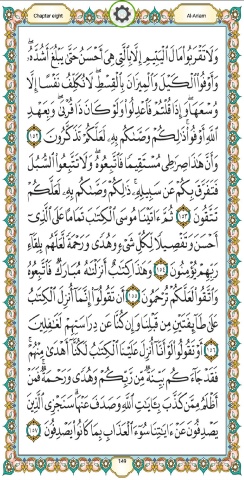 Chapter eight
Al-Anam
وَلَا تَقْرَبُوا مَالَ الْيَتِيمِ إِلَّا بِالَّتِي هِيَ أَحْسَنُ حَتَّىٰ يَبْلُغَ أَشُدَّهُ
وَأَوْفُوا الْكَيْلَ وَالْمِيزَانَ بِالْقِسْطِ لَا نُكَلِّفُ نَفْسًا إِلَّا
وُسْعَهَا وَإِذَا قُلْتُمْ فَاعْدِلُوا وَلَوْ كَانَ ذَا قُرْبَىٰ وَبِعَهْدِ
اللَّهِ أَوْفُوا ذَٰلِكُمْ وَصَّاكُم بِهِ لَعَلَّكُمْ تَذَكَّرُونَ ١٥٢
وَأَنَّ هَٰذَا صِرَاطِي مُسْتَقِيمًا فَاتَّبِعُوهُ وَلَا تَتَّبِعُوا السُّبُلَ
فَتَفَرَّقَ بِكُمْ عَن سَبِيلِهِ ذَٰلِكُمْ وَصَّاكُم بِهِ لَعَلَّكُمْ
تَتَّقُونَ ١٥٣ ثُمَّ آتَيْنَا مُوسَى الْكِتَابَ تَمَامًا عَلَى الَّذِي
أَحْسَنَ وَتَفْصِيلًا لِّكُلِّ شَيْءٍ وَهُدًى وَرَحْمَةً لَّعَلَّهُم بِلِقَاءِ
رَبِّهِمْ يُؤْمِنُونَ ١٥٤ وَهَٰذَا كِتَابٌ أَنزَلْنَاهُ مُبَارَكٌ فَاتَّبِعُوهُ
وَاتَّقُوا لَعَلَّكُمْ تُرْحَمُونَ ١٥٥ أَن تَقُولُوا إِنَّمَا أُنزِلَ الْكِتَابُ
عَلَىٰ طَائِفَتَيْنِ مِن قَبْلِنَا وَإِن كُنَّا عَن دِرَاسَتِهِمْ لَغَافِلِينَ
١٥٦ أَوْ تَقُولُوا لَوْ أَنَّا أُنزِلَ عَلَيْنَا الْكِتَابُ لَكُنَّا أَهْدَىٰ مِنْهُمْ
فَقَدْ جَاءَكُم بَيِّنَةٌ مِّن رَّبِّكُمْ وَهُدًى وَرَحْمَةٌ فَمَنْ
أَظْلَمُ مِمَّن كَذَّبَ بِآيَاتِ اللَّهِ وَصَدَفَ عَنْهَا سَنَجْزِي الَّذِينَ
يَصْدِفُونَ عَنْ آيَاتِنَا سُوءَ الْعَذَابِ بِمَا كَانُوا يَصْدِفُونَ ١٥٧
149